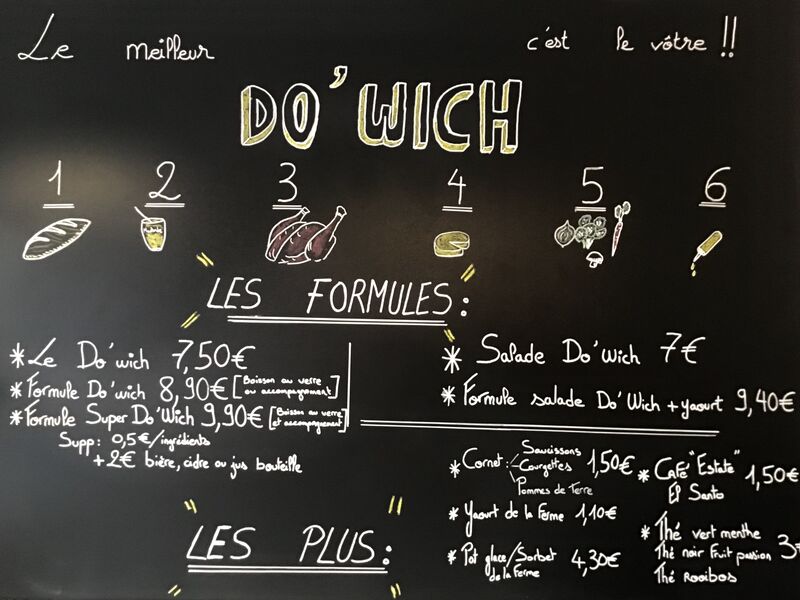 Le meilleur c'est le vôtre !!
DO'WICH
1 2 3 4 5 6
LES FORMULES:
* Le Do'wich 7,50€
* Formule Do'wich 8,90€ [Boisson au verre ou accompagnement]
* Formule Super Do'Wich 9,90€ [Boisson au verre et accompagnement]
Supp: 0,5€/ingrédients
+2€ bière, cidre ou jus bouteille
* Salade Do'Wich 7€
* Formule salade Do'Wich + yaourt 9,40€
LES PLUS:
* Cornet: Saucissons
Courgettes 1,50€
Pommes de Terre
* Yaourt de la Ferme 1,10€
* Pot glace/Sorbet de la Ferme 4,30€
* CaFé "Estate" 1,50€
El Santo
* Thé vert menthe
Thé noir Fruit passion
Thé Rooibos